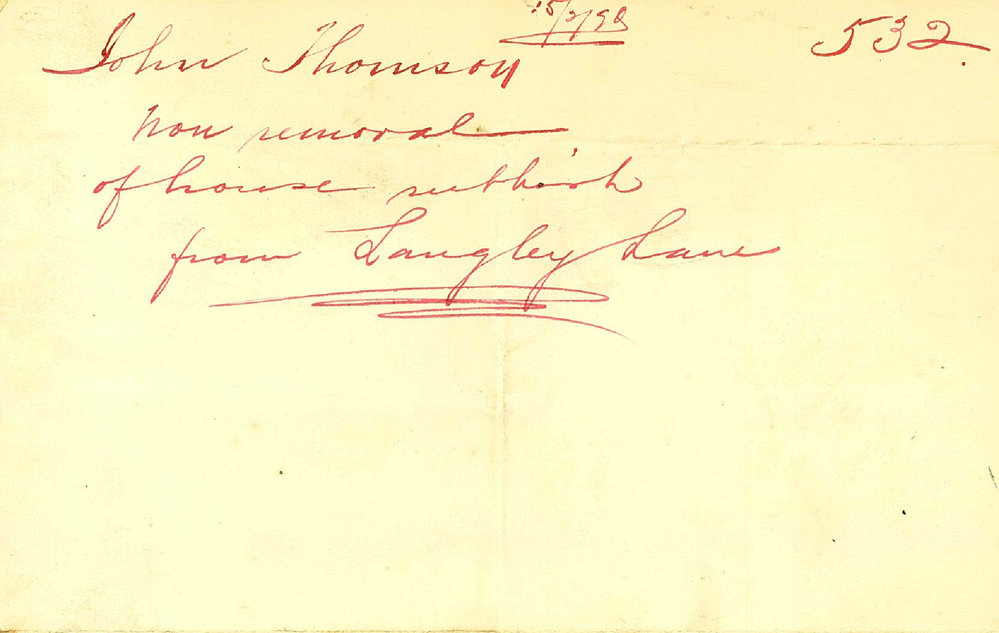 15/2/98
532
John Thomson
Non removal
of house rubbish
from Langley Lane